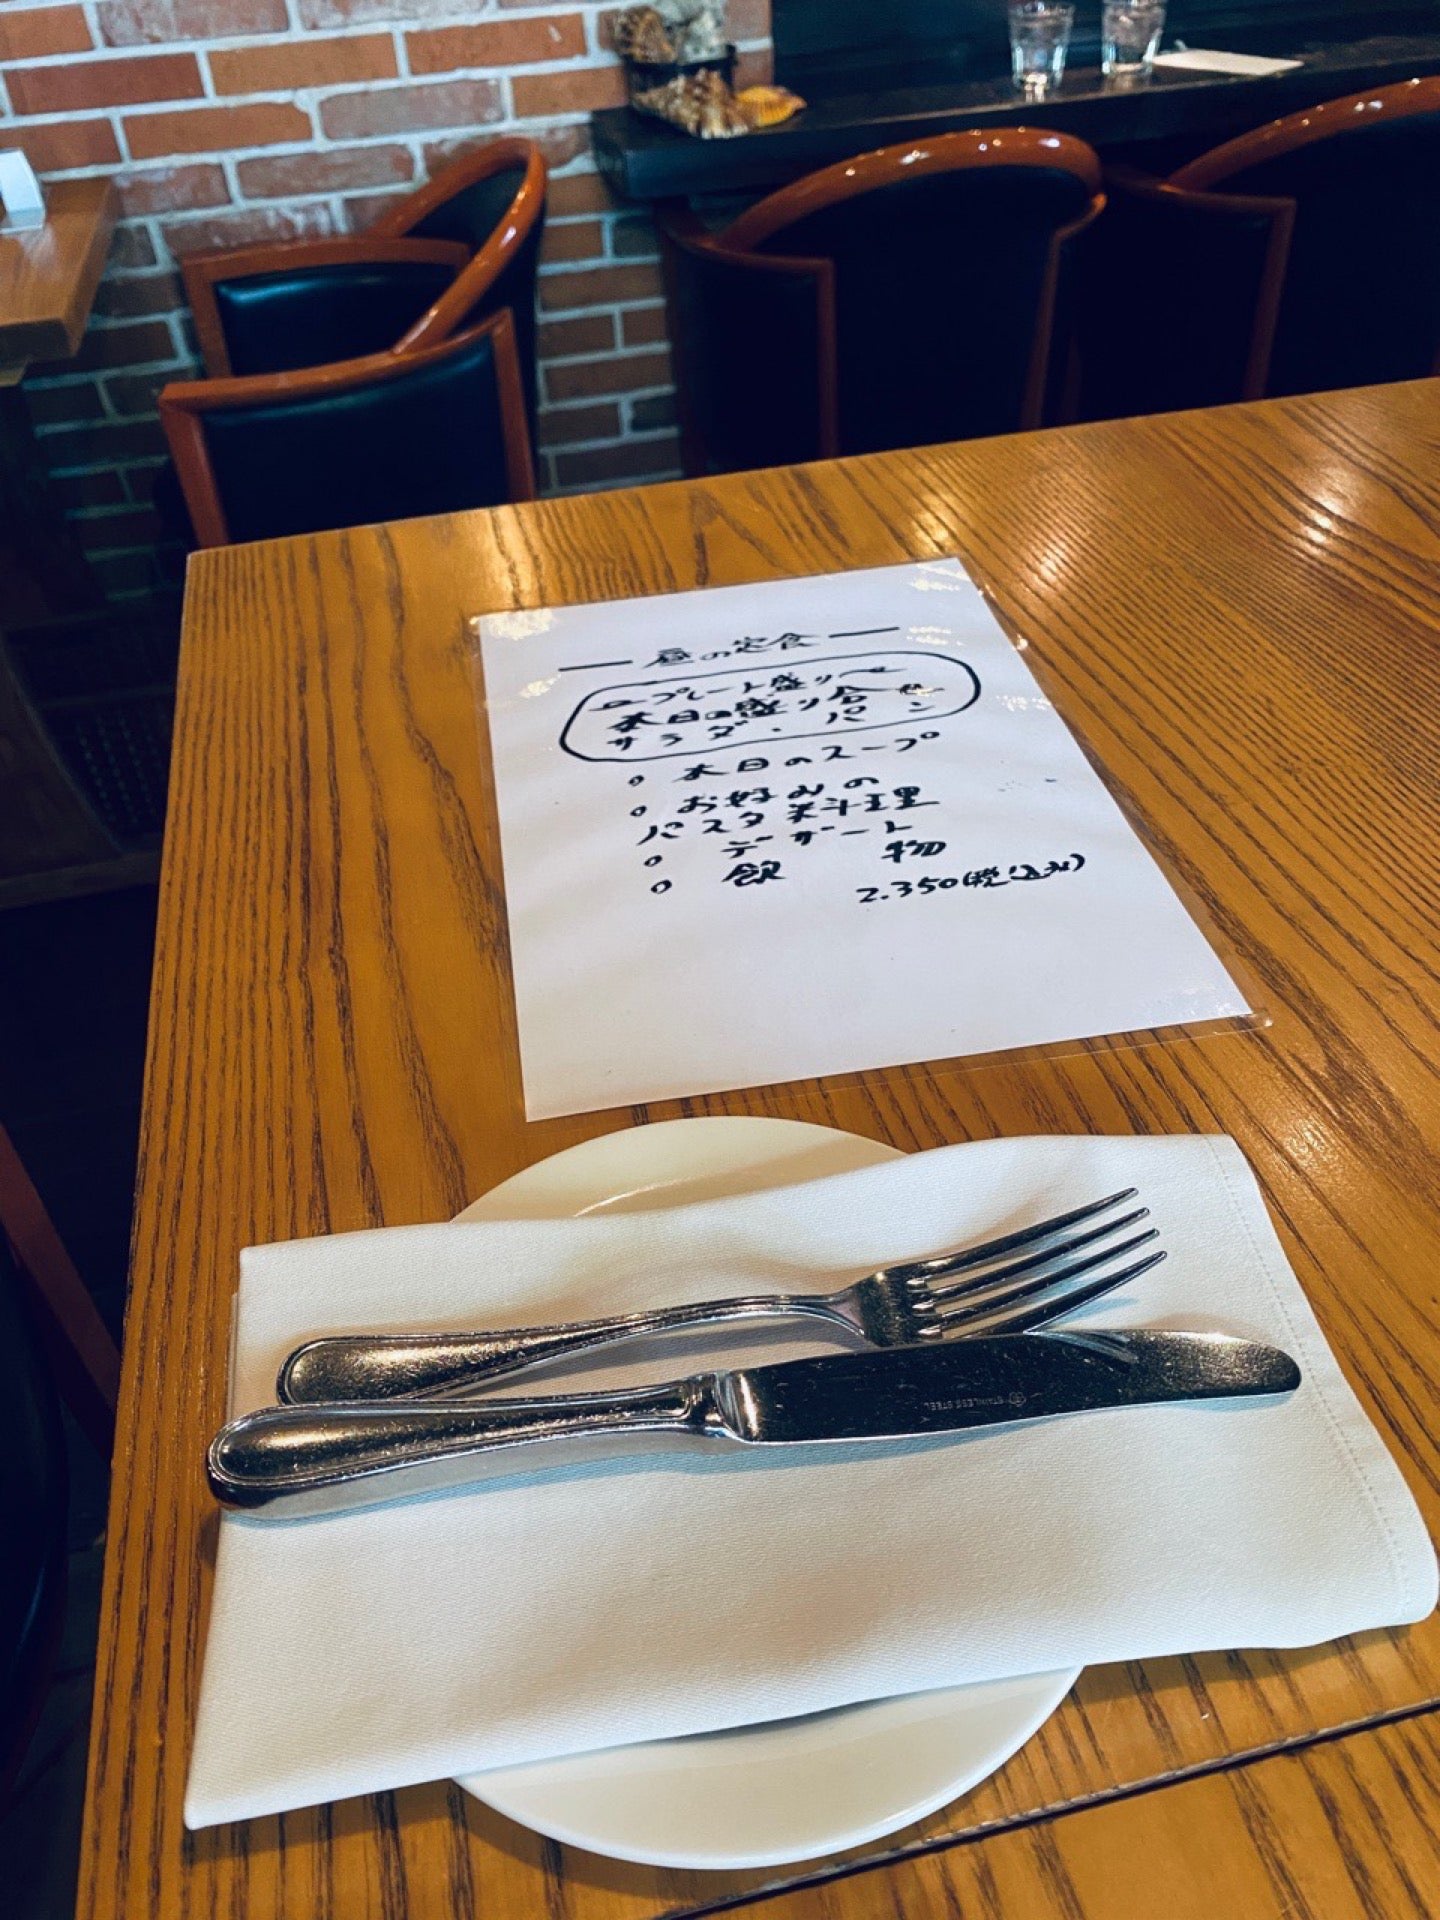 昼の定食
プレート盛り
本日の盛り合せ
サラダ・パン
○ 本日のスープ
○ お好みの
パスタ料理
○ デザート
○ 飲 物
2.350(税込み)
STAINLESS STEEL